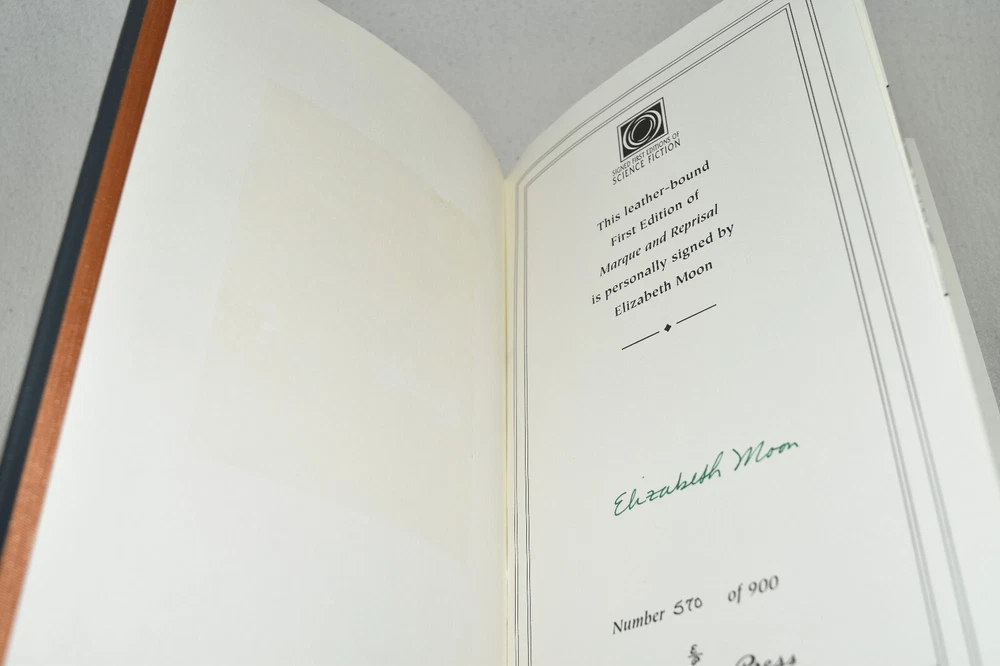 SIGNED FIRST EDITIONS OF
SCIENCE FICTION
This leather-bound
First Edition of
Marque and Reprisal
is personally signed by
Elizabeth Moon
Elizabeth Moon
Number 570 of 900
Press